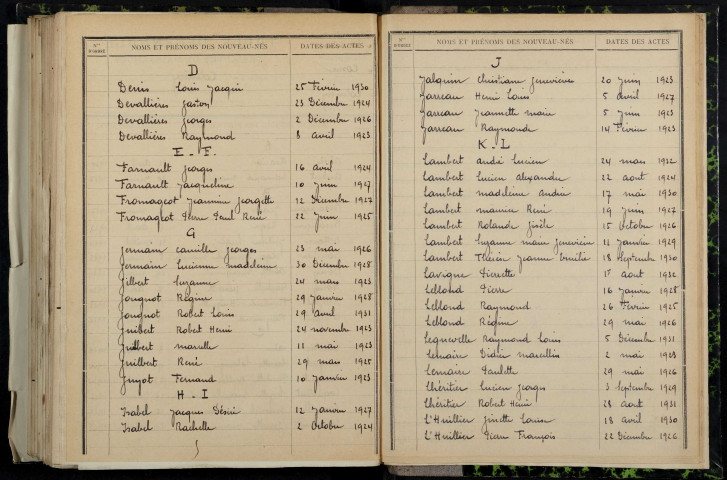 Nos D'ORDRE NOMS ET PRÉNOMS DES NOUVEAU-NÉS DATES DES ACTES
D
Denis Louis Jacques 25 Février 1930
Devallières Gaston 23 Décembre 1924
Devallières Georges 2 Décembre 1926
Devallières Raymond 8 avril 1923
E - F.
Farnault Georges 16 avril 1924
Farnault Jacqueline 10 juin 1927
Fromageot Jeannine Georgette 12 Décembre 1927
Fromageot Pierre Paul René 22 juin 1925
G
Germain Camille Georges 23 mai 1926
Germain Lucienne Madeleine 30 Décembre 1928
Gilbert Suzanne 24 mars 1923
Gougnot Régine 29 janvier 1928
Gougnot Robert Louis 29 avril 1931
Guibert Robert Henri 24 novembre 1923
Guilbert Marcelle 11 mai 1923
Guilbert René 29 mars 1925
Guyot Fernand 10 janvier 1923
H - I
Isabel Jacques Désiré 12 janvier 1927
Isabel Rachelle 2 octobre 1924
Nos D'ORDRE NOMS ET PRÉNOMS DES NOUVEAU-NÉS DATES DES ACTES
J
Jalquin Christiane Geneviève 20 juin 1923
Jarreau Henri Louis 5 avril 1927
Jarreau Jeannette Marie 5 juin 1923
Jarreau Raymonde 14 Février 1923
K - L
Lambert André Lucien 24 mars 1922
Lambert Lucien Alexandre 22 aout 1924
Lambert Madeleine Andrée 17 mai 1930
Lambert Maurice René 19 juin 1927
Lambert Rolande Gisèle 15 octobre 1926
Lambert Suzanne Marie Geneviève 11 janvier 1929
Lambert Jeanne Emilie 18 septembre 1930
Lavigne Pierrette 1er aout 1932
Leblond Pierre 16 janvier 1928
Leblond Raymond 26 Février 1925
Leblond Régine 29 mai 1926
Lequevelle Raymond Louis 5 Décembre 1931
Lemaire Didier Marcellin 2 mai 1923
Lemaire Paulette 29 mai 1926
Lhéritier Lucien Georges 3 septembre 1929
Lhéritier Robert Henri 28 aout 1931
L'Huillier Ginette Louise 18 avril 1930
L'Huillier Pierre François 22 Décembre 1926